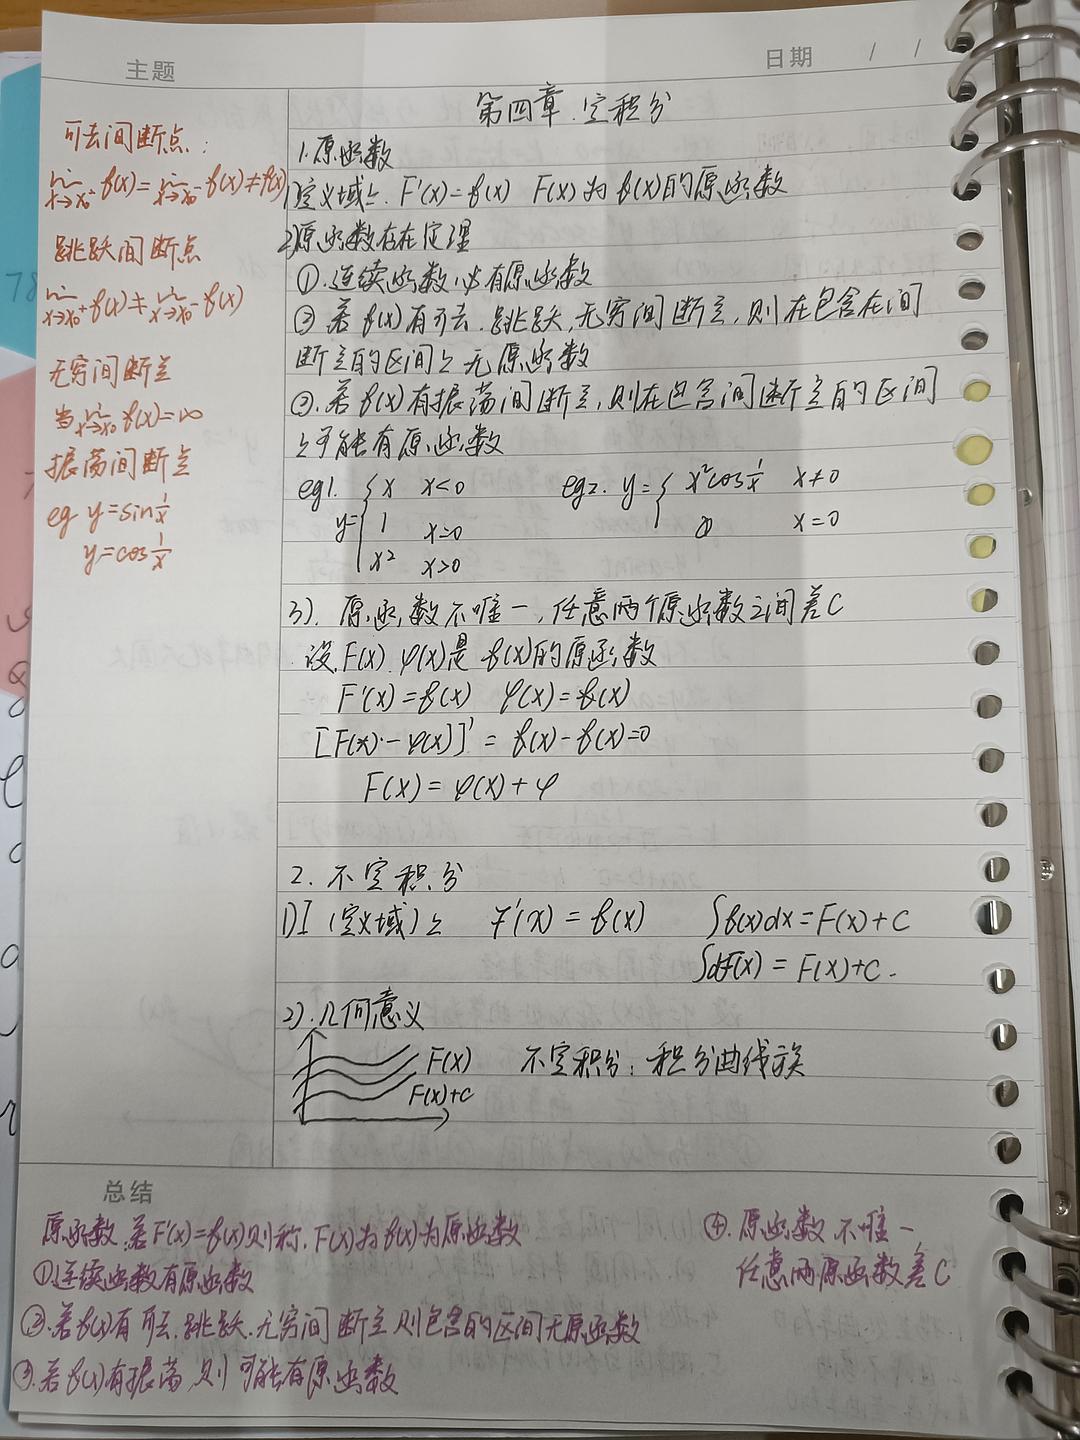 主题
日期 / /
第四章.定积分
可去间断点:
lim x→x₀⁺ f(x)=lim x→x₀⁻ f(x)≠f(x)
跳跃间断点
lim x→x₀⁺ f(x)≠lim x→x₀⁻ f(x)
无穷间断点
当lim x→x₀ f(x)=∞
振荡间断点
eg y=sin1/x
y=cos1/x
1.原函数
1)定义域上. F'(x)=f(x) F(x)为f(x)的原函数
2)原函数存在定理
①.连续函数必有原函数
② 若f(x)有可去.跳跃,无穷间断点,则在包含在间
断点的区间上无原函数
③.若f(x)有振荡间断点,则在包含间断点的区间
上可能有原函数
eg1. y={ x x<0
1 x=0
x² x>0
eg2. y={ x²cos1/x x≠0
0 x=0
3). 原函数不唯一,任意两个原函数之间差C
设F(x).φ(x)是f(x)的原函数
F'(x)=f(x) φ(x)=f(x)
[F(x)-φ(x)]'=f(x)-f(x)=0
F(x)=φ(x)+φ
2. 不定积分
1)I (定义域)上 F'(x)=f(x) ∫f(x)dx=F(x)+C
∫dF(x)=F(x)+C.
2).几何意义
F(x) 不定积分:积分曲线族
F(x)+C
总结
原函数.若F'(x)=f(x)则称.F(x)为f(x)为原函数
①连续函数有原函数
②.若f(x)有可去.跳跃.无穷间断点则包含的区间无原函数
③.若f(x)有振荡,则可能有原函数
④.原函数不唯一,
任意两原函数差C